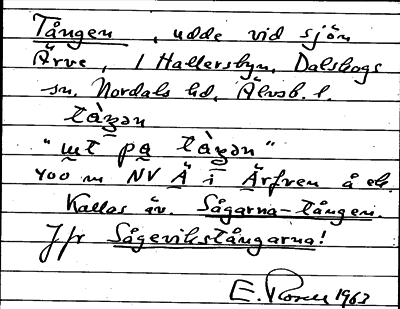 Tången, udde vid sjön
Ärve, i Hallersbyn, Dalskogs
sn. Nordals hd, Älvsb. l.
tàŋən
"ut pa tàŋən"
400 m NV Ä i Ärfven å ek.
Kallas äv. Sågarna-tången.
Jfr Sågevikstångarna!
E. 1963